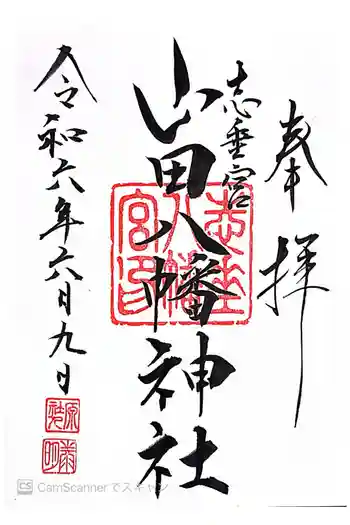 奉拝
志垂宮
山田八幡神社
令和六年六月九日
CamScannerでスキャン